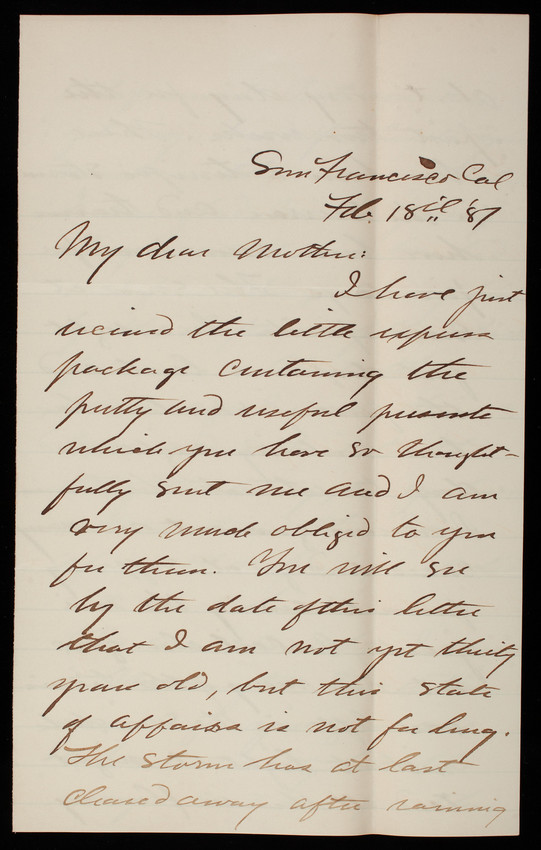 San Francisco Cal
Feb. 18th '87
My dear Mother:
I have just
received the little express
package containing the
pretty and useful presents
which you have so thought-
fully sent me and I am
very much obliged to you
for them. You will see
by the date of this letter
that I am not yet thirty
years old, but this state
of affairs is not for long.
The storm has at last
cleared away after raining